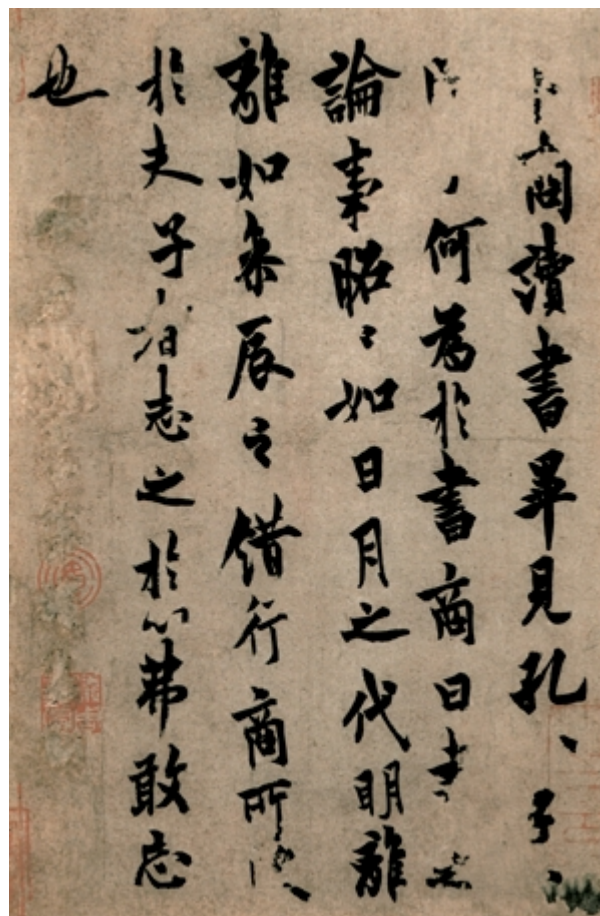 商讀書畢見孔〻子〻
何為於書商曰書
論事昭〻如日月之代明離
離如參辰之錯行商所
於夫子志之於心弗敢忘
也